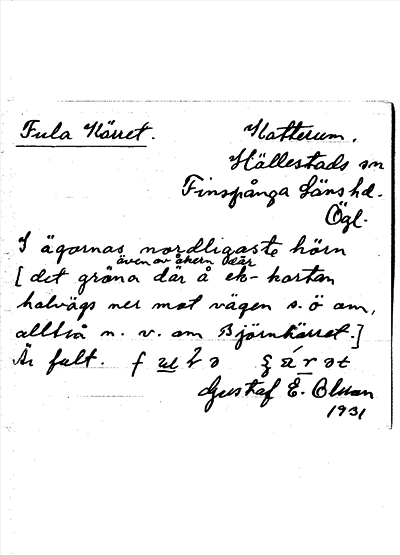 Fula Kärret.
Katterum.
Hällestads sn
Finspånga Läns hd.
Ögl.
I ägornas nordligaste hörn
även av åkern där
[det gröna där å ek-kartan
halvägs ner mot vägen s.ö om,
alltså n. v. om Björnkärret.]
Är fult.
Gustaf E. Olsson
1931